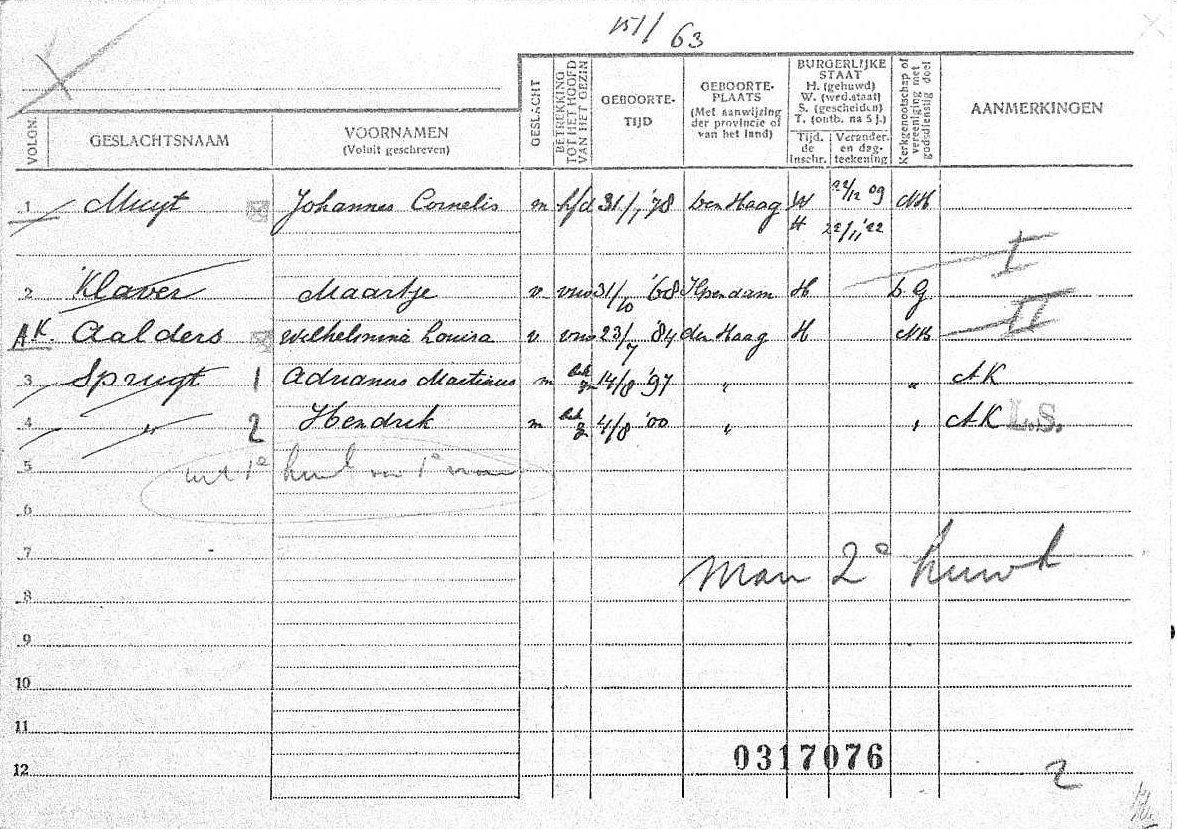 151/63
VOLGN.
GESLACHTSNAAM
VOORNAMEN
(Voluit geschreven)
GESLACHT
BETREKKING TOT HET HOOFD VAN HET GEZIN
GEBOORTE-
TIJD
GEBOORTE-
PLAATS
(Met aanwijzing
der provincie of
van het land)
BURGERLIJKE
STAAT
H. (gehuwd)
W. (wed.staat)
S. (gescheiden)
T. (ontb. na 5 j.)
Tijd.
de
Inschr.
Verander-
en dag-
teekening
Kerkgenootschap of vereeniging met godsdienstig doel
AANMERKINGEN
1 Muyt Johannes Cornelis m hfd 31/1 '78 den Haag W 22/12 09 NH
H 22/11 '22
I
2 Klaver Maartje v vrw 31/10 '68 Ilpendam H D G
II
AK. Aalders Wilhelmina Louisa v vrw 23/7 '84 den Haag H NH
3 Spruyt 1 Adrianus Martinus m 14/8 '97 " " AK
4 " 2 Hendrik m 4/8 '00 " " AK L.S.
5 uit 1e huw van 1e vrouw
6
7
Man 2e huw
8
9
10
11
0317076
12
2